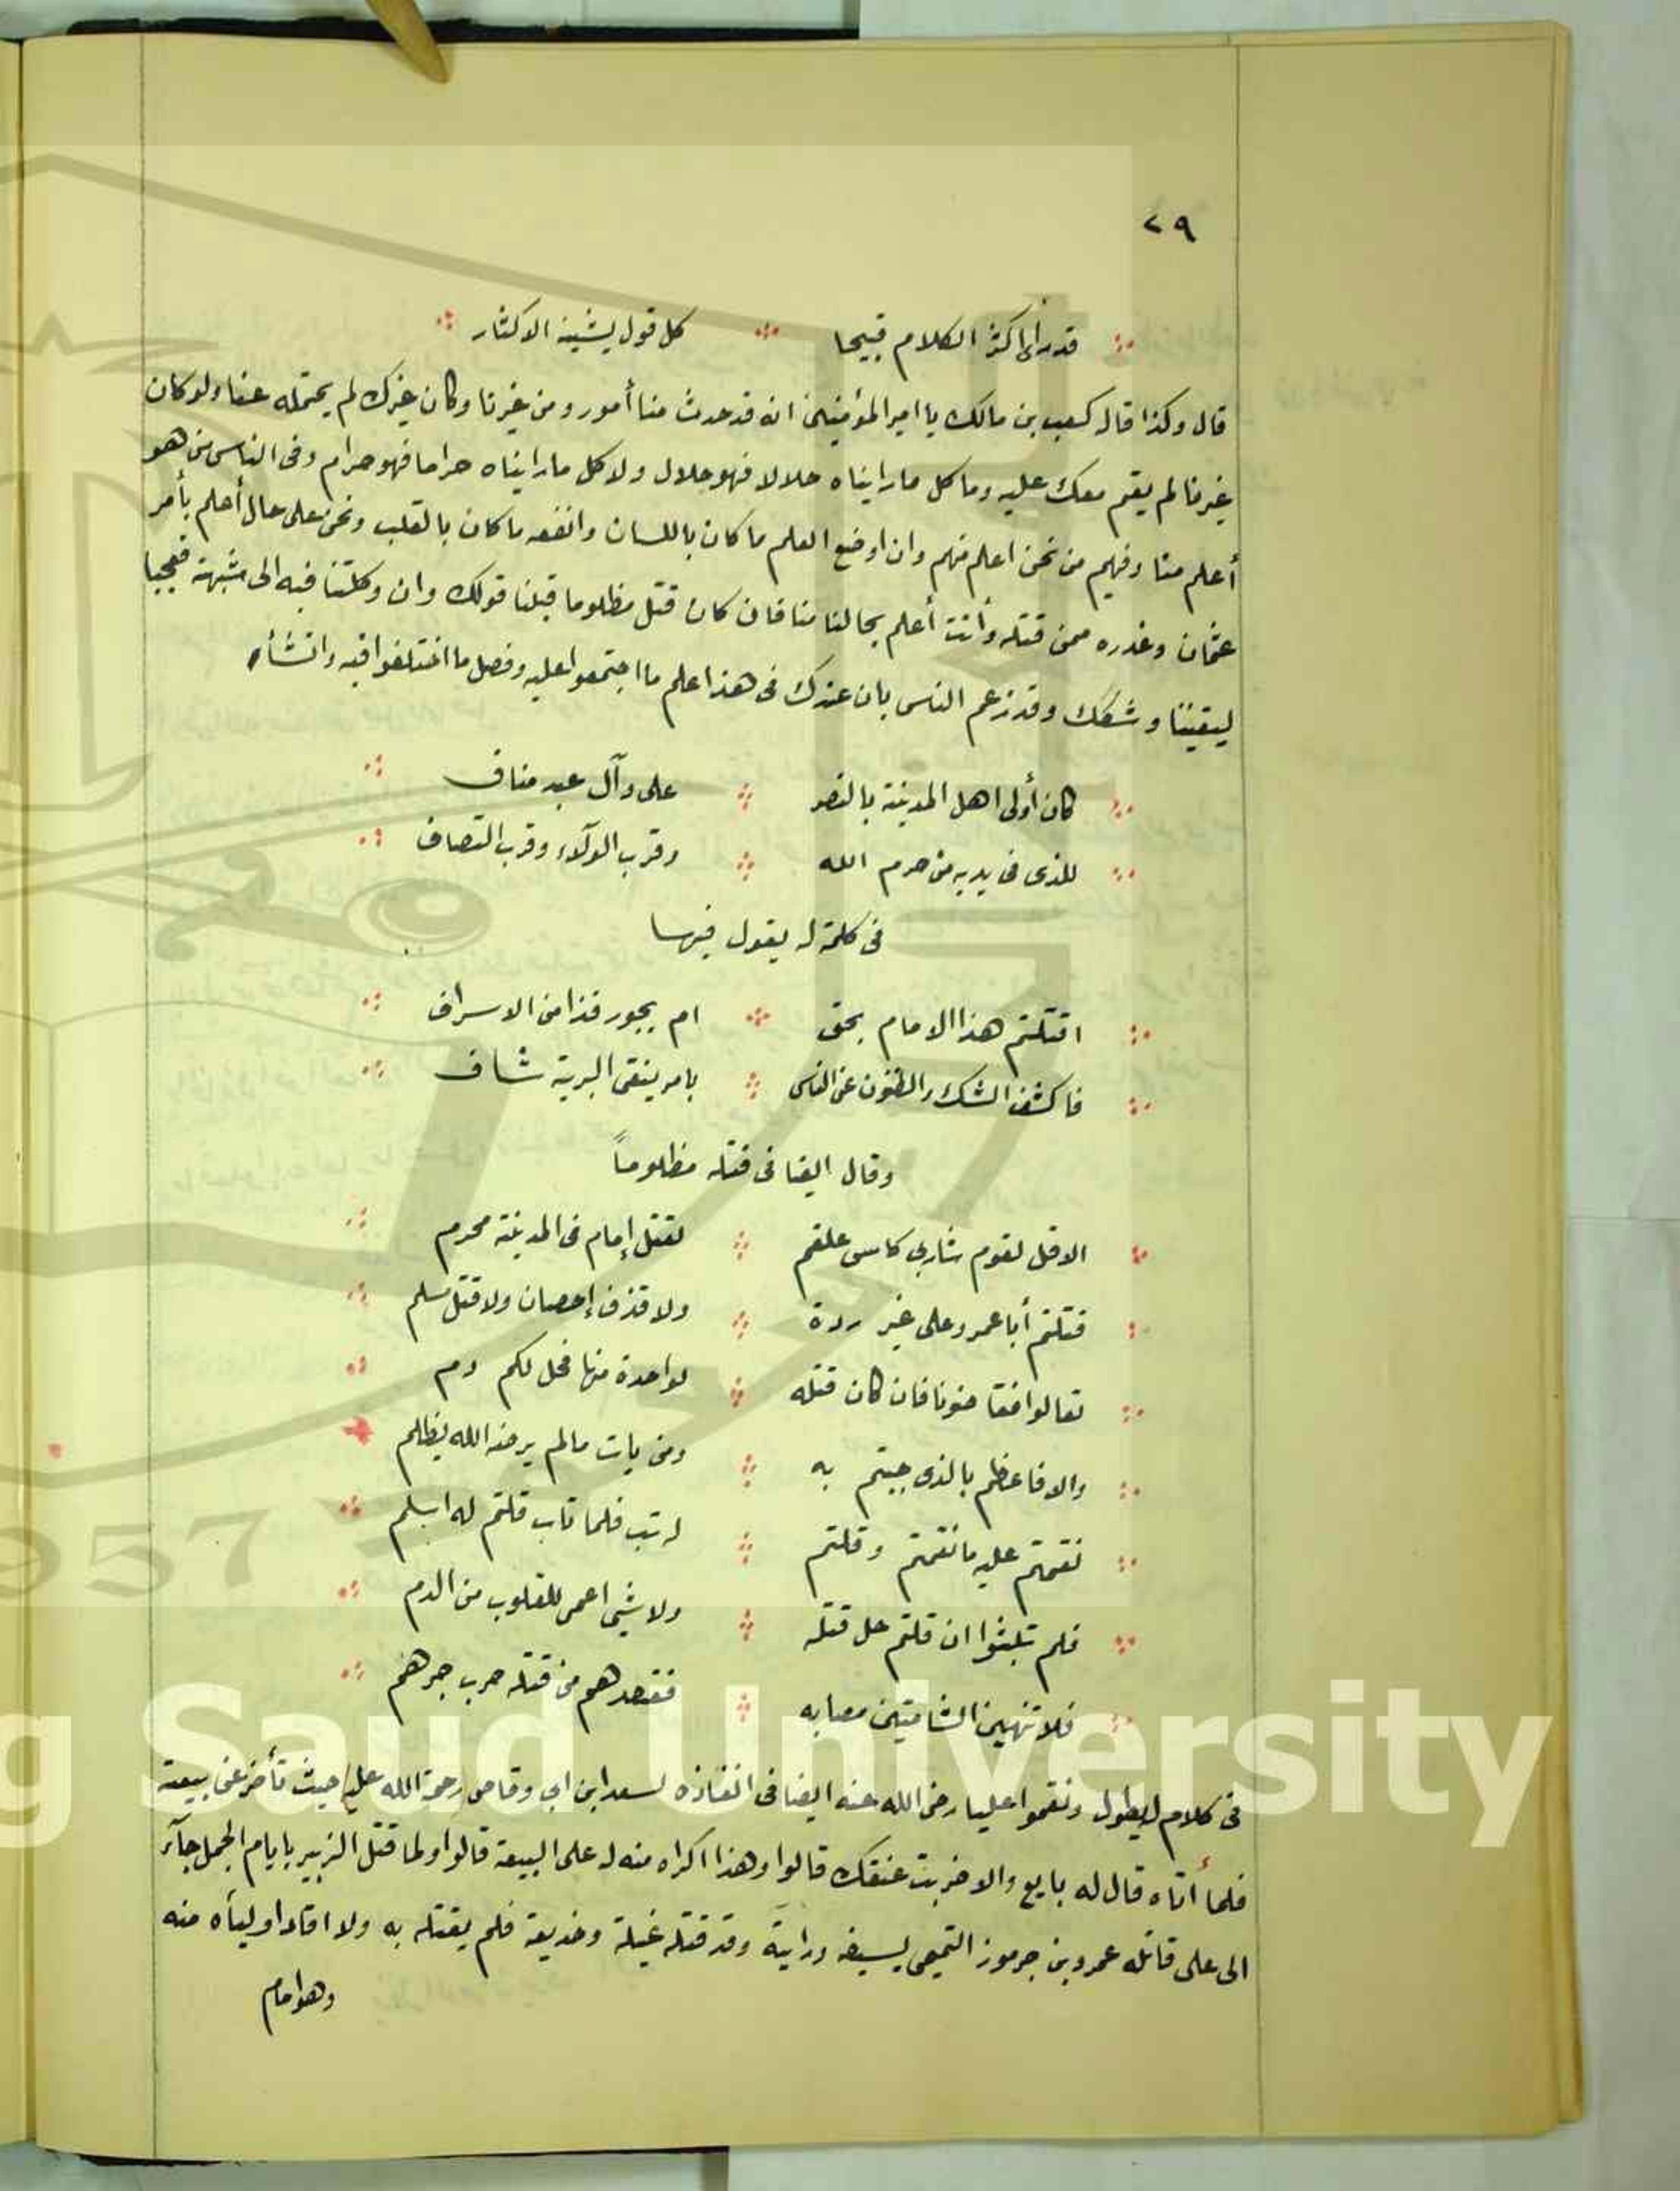 ٢٩
قد أرانا كثر الكلام قبيحا كل قول يشينه الاكثار
قال وكذا قال كعب بن مالك يا امير المؤمنين انه قد حدث منا أمور ومن غيرنا وكان غيرك لم يحتمله عنا ولو كان
غيرنا لم يقم معك عليه وما كل ما رايناه حلالا فهو حلال ولا كل ما رايناه حراما فهو حرام وفى الناس من هو
أعلم منا وفيهم من نحن اعلم منهم وان اوضع العلم ما كان باللسان وانفعه ما كان بالقلب ونحن على حال أعلم بأمر
عثمان وغدره ممن قتله وأنت أعلم بحالنا منا فان كان قتل مظلوما قبلنا قولك وان وكلتنا فيه الى شبهة فعجبا
ليقيننا وشكك وقد زعم الناس بان عندك فى هذا علم ما اجتمعوا عليه وفصل ما اختلفوا فيه وانشأ
كان أولى اهل المدينة بالنصر على وآل عبد مناف
للذى فى يديه من حرم الله وقرب الولآء وقرب التصاف
فى كلمة له يقول فيها
اقتلتم هذا الامام بحق ام بجور فذا من الاسراف
فاكشف الشك والظنون عن الناس بامر ينقى البرية شاف
وقال ايضا فى قتله مظلوماً
الا قل لقوم شاربى كاس علقم لقتل إمام فى المدينة محرم
قتلتم أبا عمرو على غير ردة ولا قذف إحصان ولا قتل مسلم
تعالوا فقاضونا فان كان قتله لواحدة منها فحل لكم دم
والا فاعظم بالذى جيتم به ومن يات مالم يرضه الله يظلم
نقمتم عليه ما نقمتم وقلتم له تب فلما تاب قلتم له ابسلم
فلم تلبثوا ان قلتم حل قتله ولا شيئ اعمى للقلوب من الدم
فلا تنهين الشامتين مصابه فقصدهم من قتله حرب جرهم
فى كلام له يطول ونقموا عليا رضى الله عنه ايضا فى انفاذه لسعد ابن ابى وقاص رحمة الله عليه حيث تأخر عن بيعته
فلما أتاه قال له بايع والا ضربت عنقك قالوا وهذا اكراه منه له على البيعة قالوا ولما قتل الزبير بايام الجمل جآء
الى على قاتله عمرو بن جرموز التميمى بسيفه ورايته وقد قتله غيلة وخديعة فلم يقتله به ولا اقاد اوليأه منه
وهو امام
King Saud University
1957